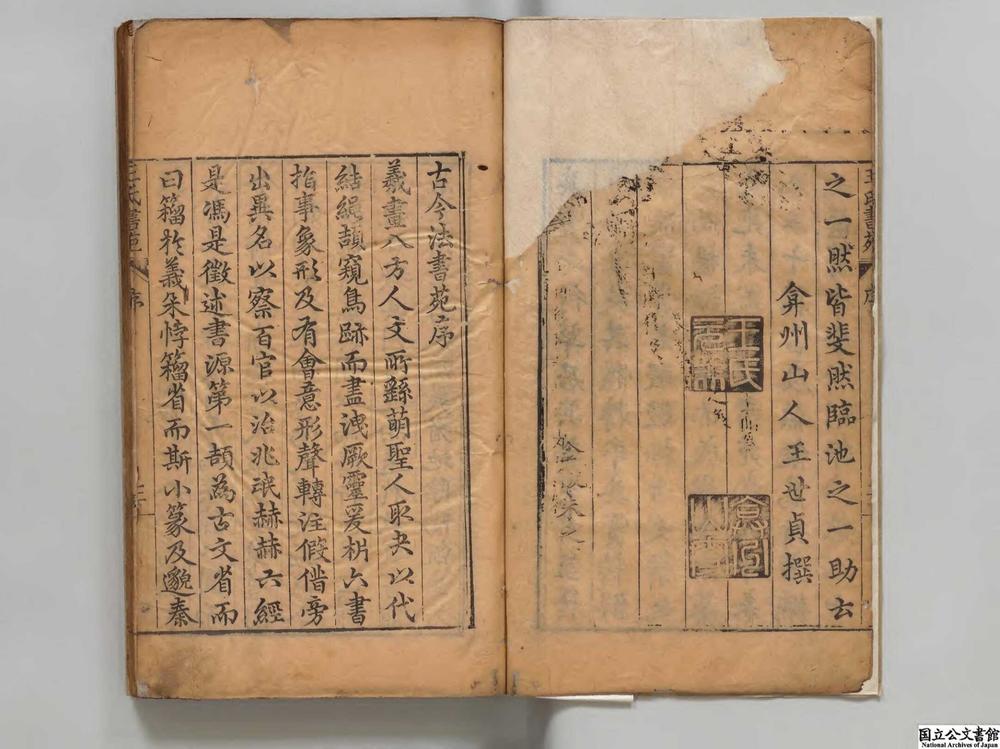 王氏書苑
序
之一然皆斐然臨池之一助云
弇州山人王世貞撰
王氏
古今法書苑序
羲畫八方人文所繇萌聖人取夬以代
結繩頡窺鳥跡而盡洩厥靈爰枿六書
指事象形及有會意形聲轉注假借旁
出異名以察百官以治兆氓赫赫六經
是馮是徵述書源第一頡為古文省而
曰籀於義朵悖籀省而斯小篆及邈秦
王氏書苑
序
国立公文書館
National Archives of Japan